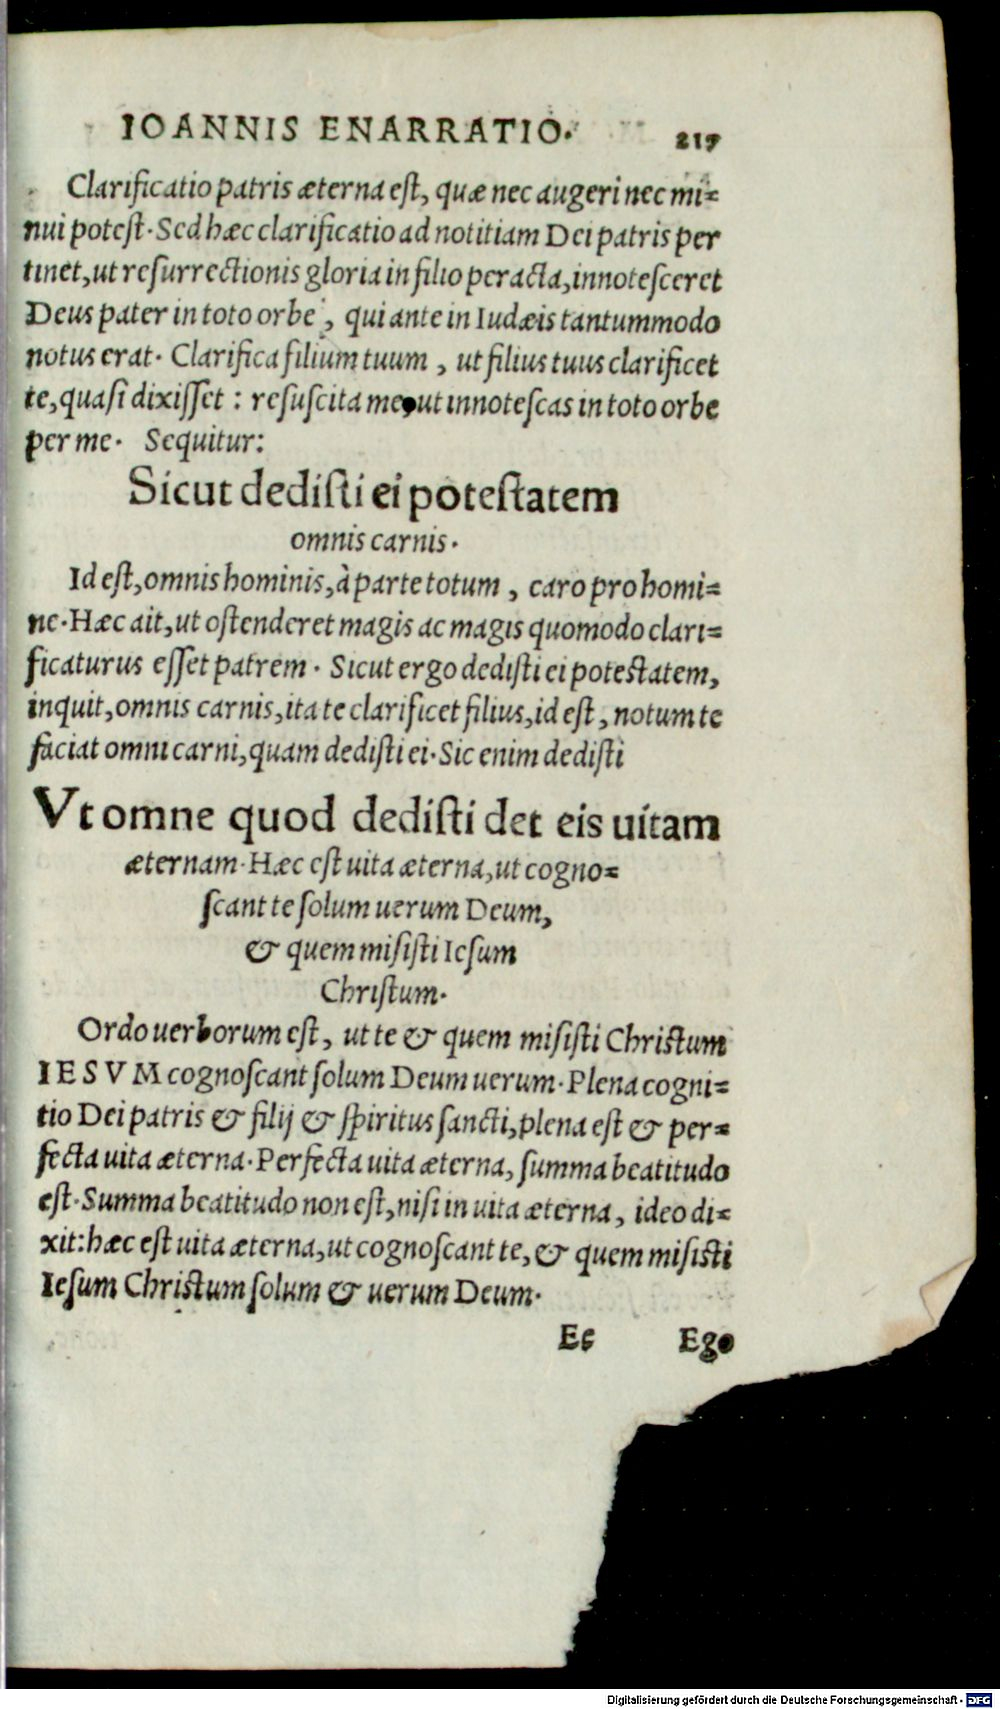 IOANNIS ENARRATIO. 217
Clarificatio patris æterna est, quæ nec augeri nec mi-
nui potest. Sed hæc clarificatio ad notitiam Dei patris per
tinet, ut resurrectionis gloria in filio peracta, innotesceret
Deus pater in toto orbe, qui ante in Iudæis tantummodo
notus erat. Clarifica filium tuum, ut filius tuus clarificet
te, quasi dixisset: resuscita me, ut innotescas in toto orbe
per me. Sequitur:
Sicut dedisti ei potestatem
omnis carnis.
Id est, omnis hominis, à parte totum, caro pro homi-
ne. Hæc ait, ut ostenderet magis ac magis quomodo clari-
ficaturus esset patrem. Sicut ergo dedisti ei potestatem,
inquit, omnis carnis, ita te clarificet filius, id est, notum te
faciat omni carni, quam dedisti ei. Sic enim dedisti
Vt omne quod dedisti det eis uitam
æternam. Hæc est uita æterna, ut cogno-
scant te solum uerum Deum,
& quem misisti Iesum
Christum.
Ordo uerborum est, ut te & quem misisti Christum
IESVM cognoscant solum Deum uerum. Plena cogni-
tio Dei patris & filij & spiritus sancti, plena est & per-
fecta uita æterna. Perfecta uita æterna, summa beatitudo
est. Summa beatitudo non est, nisi in uita æterna, ideo di-
xit: hæc est uita æterna, ut cognoscant te, & quem misisti
Iesum Christum solum & uerum Deum.
Ee Ego
Digitalisierung gefördert durch die Deutsche Forschungsgemeinschaft - DFG